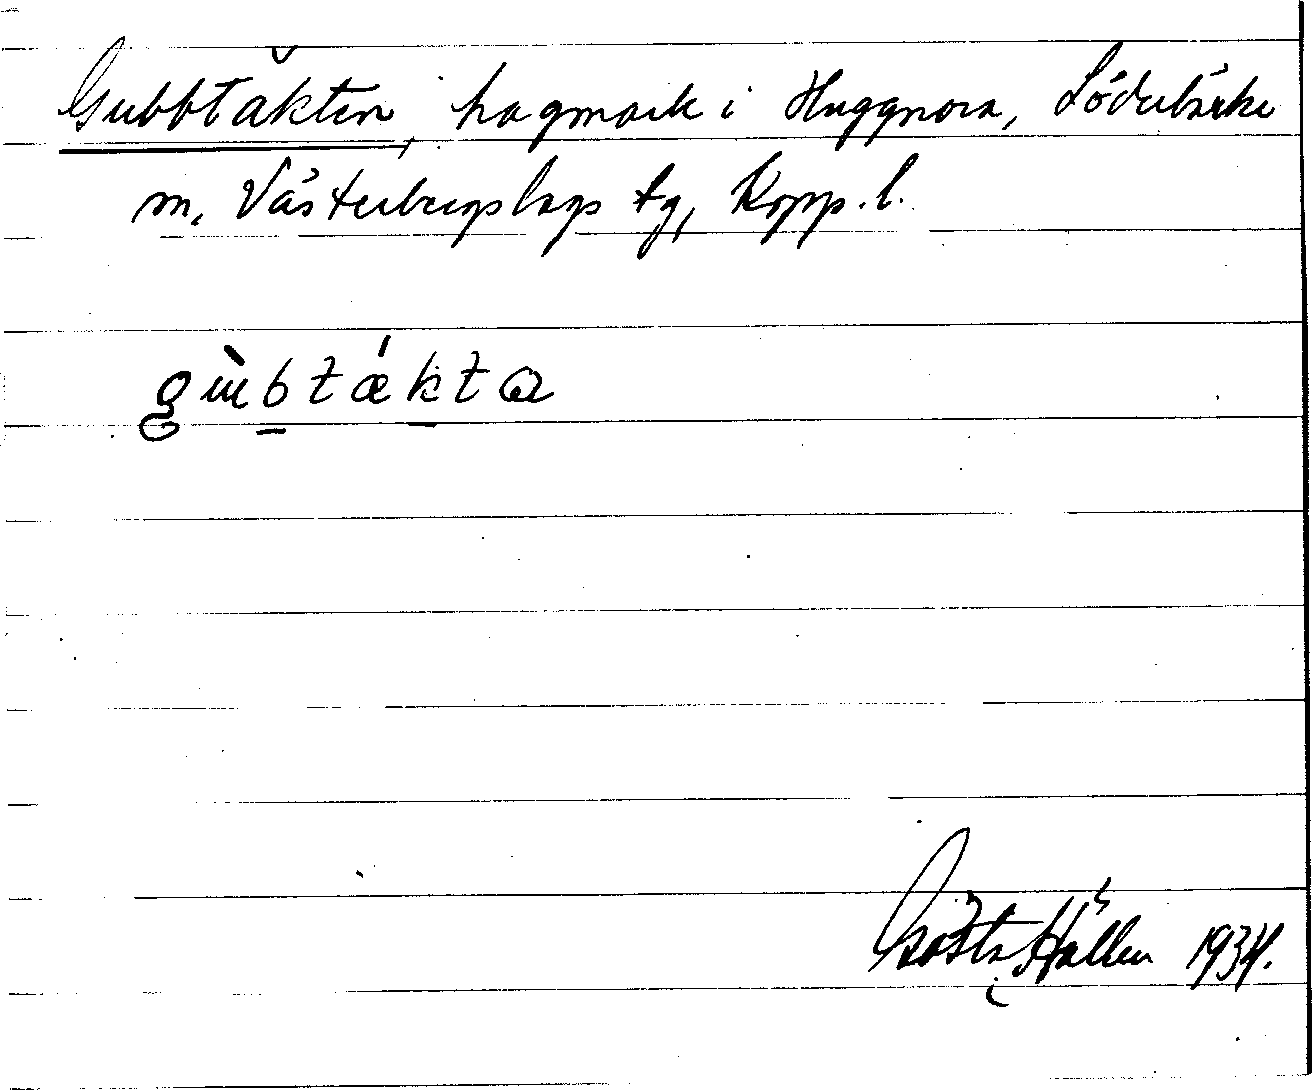 Gubbtäkten, hagmark i Huggnora, Söderbärke
m, Västerbergslags tg, Kopp. l.
gùbtǽkta
Gösta Hallen 1934.